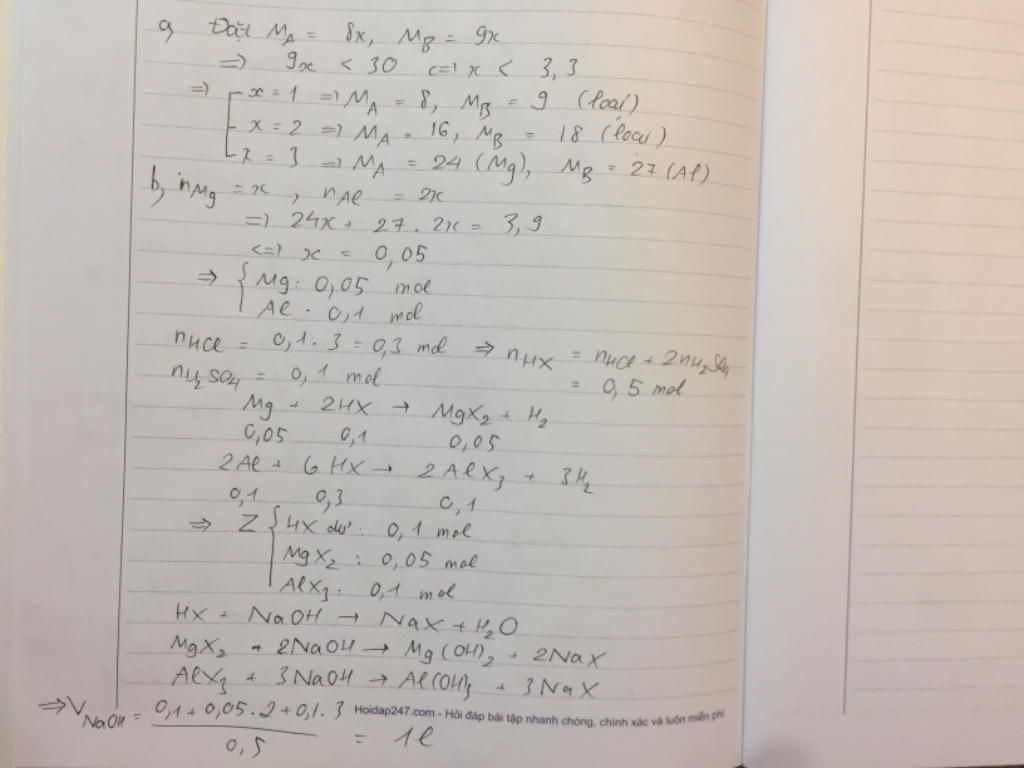 a, Đặt M_A = 8x, M_B = 9x
=> 9x < 30 <=> x < 3,3
=> x = 1 => M_A = 8, M_B = 9 (loại)
x = 2 => M_A = 16, M_B = 18 (loại)
x = 3 => M_A = 24 (Mg), M_B = 27 (Al)
b, n_Mg = x, n_Al = 2x
=> 24x + 27 . 2x = 3,9
<=> x = 0,05
=> { Mg: 0,05 mol
Al : 0,1 mol
n_HCl = 0,1 . 3 = 0,3 mol => n_HX = n_HCl + 2n_H₂SO₄
n_H₂SO₄ = 0,1 mol = 0,5 mol
Mg + 2HX → MgX₂ + H₂
0,05 0,1 0,05
2Al + 6HX → 2AlX₃ + 3H₂
0,1 0,3 0,1
=> Z { HX dư: 0,1 mol
MgX₂ : 0,05 mol
AlX₃ : 0,1 mol
HX + NaOH → NaX + H₂O
MgX₂ + 2NaOH → Mg(OH)₂ + 2NaX
AlX₃ + 3NaOH → Al(OH)₃ + 3NaX
=> V_NaOH = (0,1 + 0,05 . 2 + 0,1 . 3) / 0,5 = 1l
Hoidap247.com - Hỏi đáp bài tập nhanh chóng, chính xác và luôn miễn phí